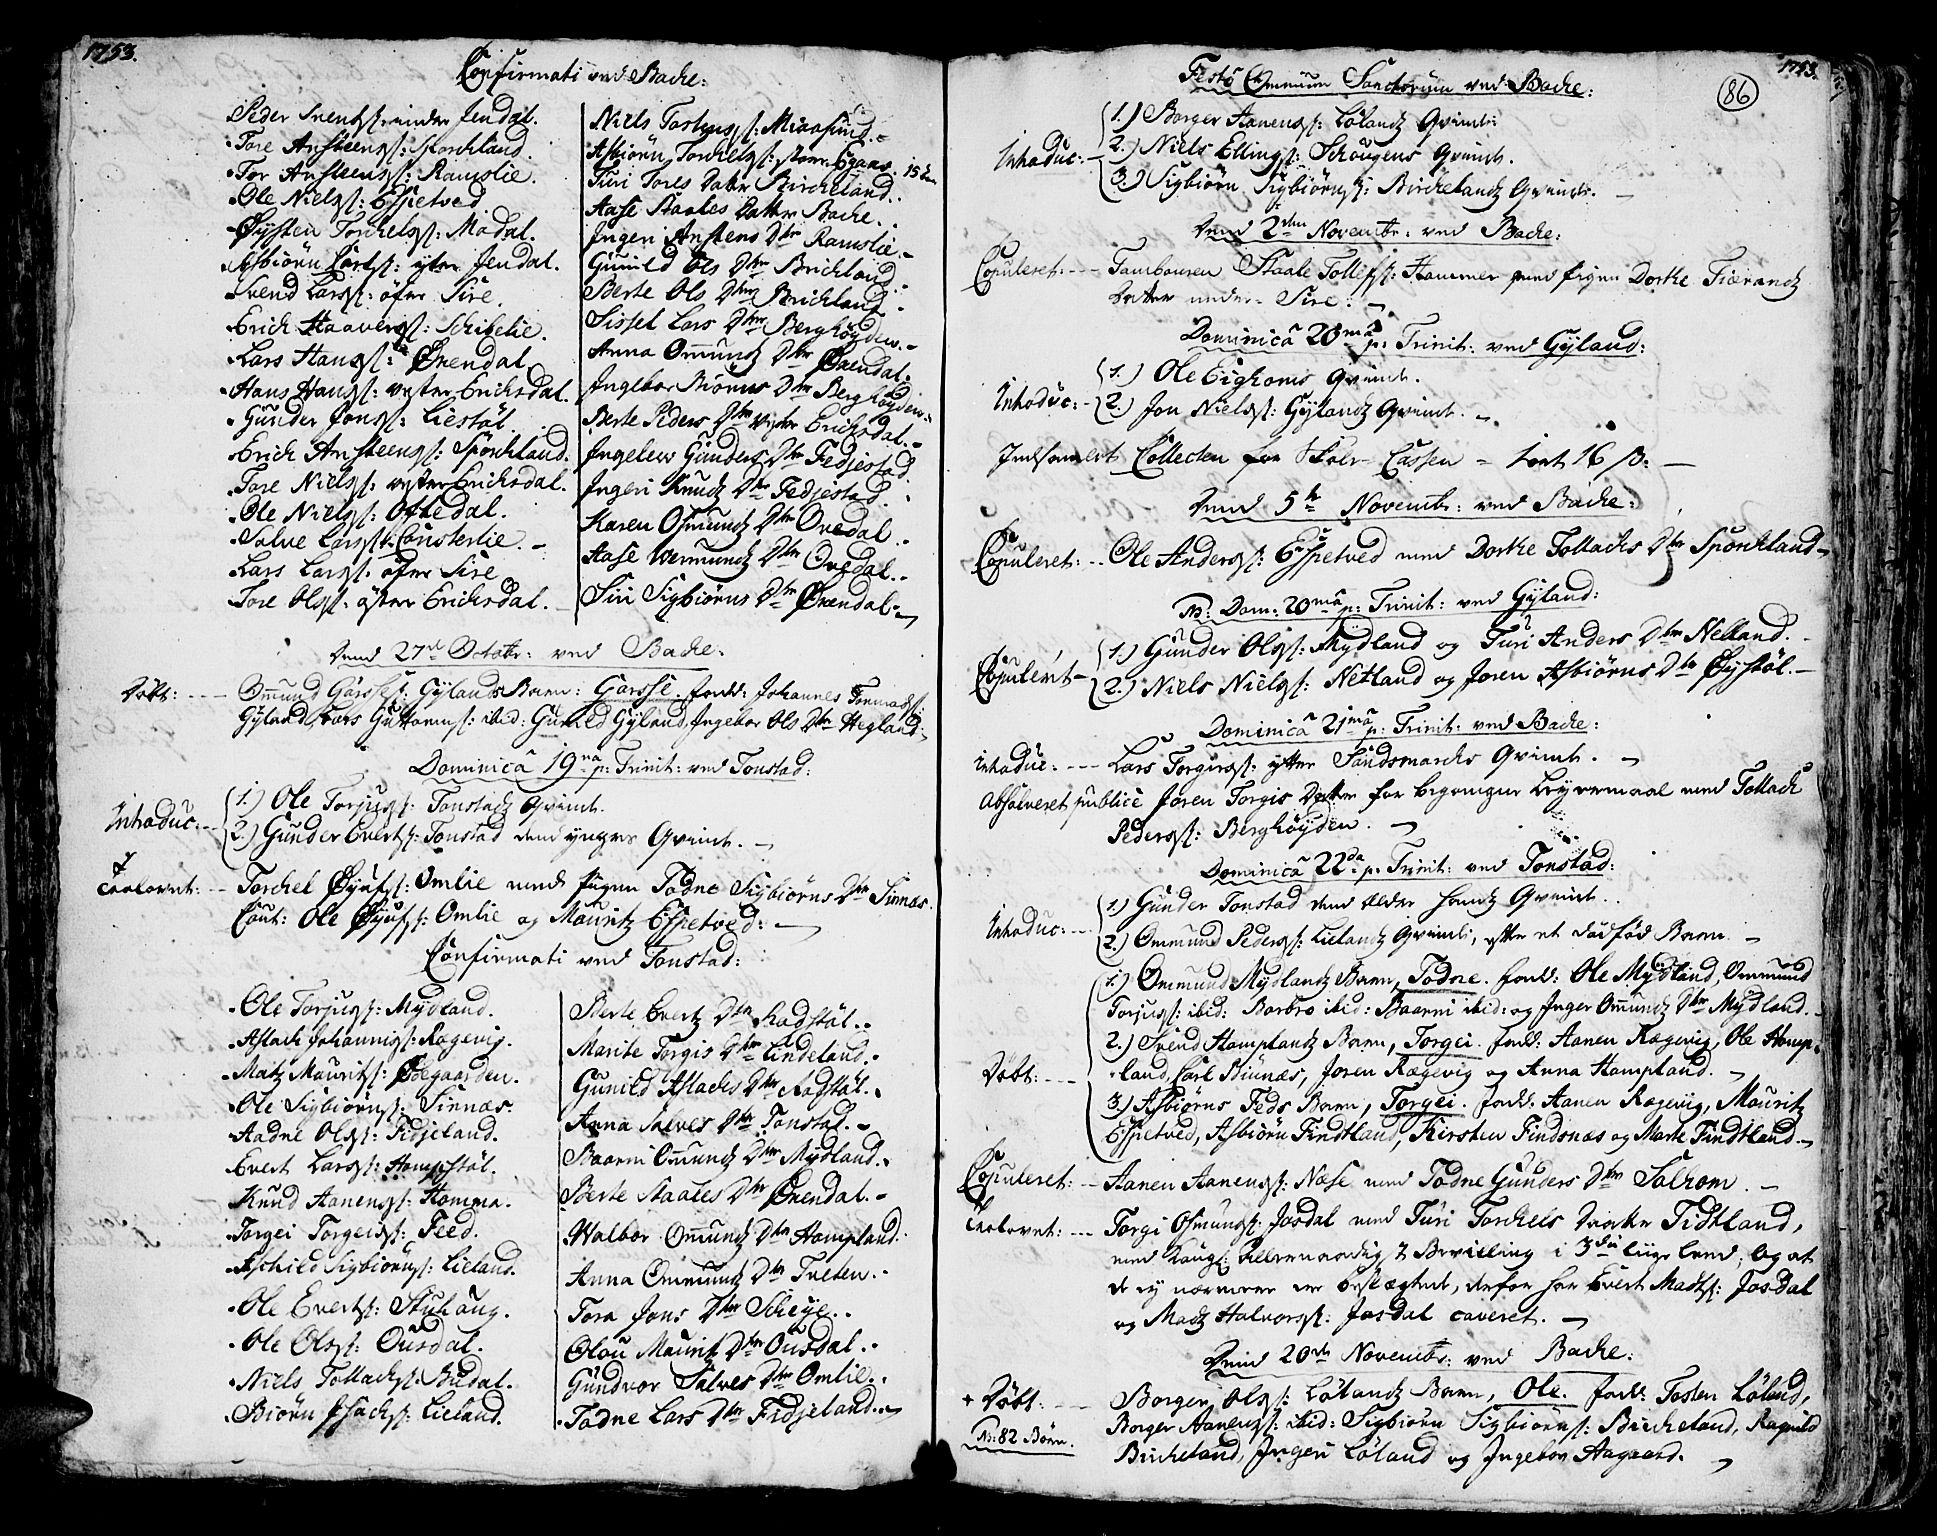 1753.
Confirmati ved Bache:
Peder Svends: inder Jendal.
Tore Ansteens: Sponchland.
Tor Ansteens: Ramslie.
Ole Niels: Espetved
Øysten Torchels: Modal.
Asbiörn Carls: yter Jendal.
Svend Lars: öfre Sire.
Erich Haavers: Schibelie.
Lars Hans: Ørendal.
Hans Hans: vester Erichsdal.
Gunder Jons: Liestöl.
Erich Ansteens: Sponchland.
Tore Niels: vester Erichsdal.
Ole Niels: Othedal.
Salve Lars: Lousterlie.
Lars Lars: öfre Sire
Tore Ols: öster Erichsdal.
Niels Tostens: Miaasund.
Asbiörn Torchels: store Egaas. 15
Turi Tores Datter Bircheland.
Aase Staales Datter Bache.
Ingeri Anstens Dtr Ramslie.
Gunild Ols Dtr Brichland.
Berte Ols Dtr Brichland
Sissel Lars Dtr Berghöyden.
Anna Omunds Dtr Ørendal.
Ingebor Biörns Dtr Berghöyden.
Berte Peders Dtr vester Erichsdal.
Ingelev Gunders Dtr Fedjestad.
Ingeri Knuds Dtr Fedjestad.
Karen Osmunds Dtr Ovedal.
Aase Wermunds Dtr Ovedal.
Siri Sigbiörns Dtr Ørendal.
Dend 27de Octobr: ved Bache:
Döbt: --- Omund Gorsses: Gylands Barn: Gorsse. fadd: Johannes Tormods:
Gyland, Lars Guttorms: ibid: Gunild Gyland, Ingebor Ols Dtr Hegland.
Dominica 19na p: Trinit: ved Tonstad:
Introduc: -- 1.) Ole Torjus: Tonstads Qvinde.
2.) Gunder Everts: Tonstad den yngres Qvinde.
Trolovet: -- Torchel Øyufs: Omlie med Pigen Todne Sigbiörns Dtr Sinnes.
Caut: Ole Øyufs: Omlie og Mauritz Espetved:
Confirmati ved Tonstad:
Ole Torjus: Mydland.
Aslach Johannis: Rægevig.
Matz Maurits: Ødegaarden.
Ole Sigbiörns: Sinnæs.
Aadne Ols: Fidjeland.
Evert Lars: Hompstöl.
Knud Aanens: Homma.
Torgei Torgeis: Feed.
Eschild Sigbiörns: Lieland.
Ole Everts: Stuhaug.
Ole Ols: Ousdal.
Niels Tollachs: Budal.
Biörn Isachs: Lieland.
Berte Everts Dtr Kadstöl.
Marite Torgis Dtr Lindeland.
Gunild Aslachs Dtr Kadstöl.
Anna Salves Dtr Tonstad.
Baarni Omunds Dtr Mydland.
Berte Staales Dtr Ørendal.
Walbor Omunds Dtr Hompland.
Anna Ommunds Dtr Tveten.
Tora Jons Dtr Scheye.
Olou Maurits Dtr Ousdal.
Gundvor Salves Dtr Omlie.
Todne Lars Dtr Fidjeland.
1753.
86
Festo Omnium Sanctorum ved Bache:
Introduc: -- 1.) Borger Aanens: Lölands Qvinde.
2.) Niels Ellings: Schougens Qvinde.
3.) Sigbiörn Sigbiörns: Birchelands Qvinde.
Dend 2den Novembr: ved Bache:
Copuleret: --- Tambouren Staale Tollefs: Hammer med Pigen Dorthe Tiærands
Datter under Sire.
Dominica 20ma p: Trinit: ved Gyland:
Introduc: -- 1.) Ole Eighoms Qvinde.
2.) Jon Niels: Gylands Qvinde.
Indsamlet Collecten for Cassen = 1 ort 16 ß:
Dend 5te Novembr: ved Bache:
Copuleret: -- Ole Anders: Espetved med Dorthe Tollachs Dtr Sponchland
NB: Dom: 20ma p: Trinit: ved Gyland:
Copulerit -- 1.) Gunder Ols: Mydland og Turi Anders Dtr Netland.
2.) Niels Niels: Netland og Joren Asbiörns Dtr Øystöl.
Dominica 21ma p: Trinit: ved Bache:
Introduc: --- Lars Torgers: ytter Sandsmarchs Qvinde.
Absolveret publice Joren Torgis Datter for begangen Leyermaal med Tollach
Peders: Berghöyden.
Dominica 22da p: Trinit: ved Tonstad:
Introduc: -- 1.) Gunder Tonstad den ældre hands Qvinde.
2.) Ommund Peders: Lielands Qvinde, efter et dödfød Barn.
Döbt: --- 1.) Ommund Mydlands Barn, Todne. fadd: Ole Mydland, Ommund
Torjus: ibid: Barbro ibid: Baarni ibid: og Inger Omunds Dtr Mydland.
2.) Svend Homplands Barn, Torgei. fadd: Aanen Rægevig, Ole Homp-
land, Carl Biunæs, Joren Rægevig og Anna Hompland.
3.) Asbiörns Feds Barn, Torgei. fadd: Aanen Rægevig, Mauritz
Espetved, Asbiörn Tindtland, Kirsten Findsnæs og Marte Tindtland.
Copuleret: -- Aanen Aanens: Næse med Todne Gunders Dtr Salrom.
Trolovet: --- Torgi Osmunds: Josdal med Turi Torchels Datter Tidtland,
med Kongl: allernaadigst Bevilling i 3die liige leed; og at
de ey nærmere ere beslægtede, derfor har Evert Mads: Josdal
og Mads Halvors: Josdal caveret.
Dend 20de Novembr: ved Bache:
+ Döbt: --- Borger Ols: Lölands Barn, Ole. fadd: Tosten Löland,
NB: 82 Börn. Borger Aanens: ibid: Sigbiörn Sigbiörns: Bircheland, Ragnild
Bircheland, Ingeri Löland og Ingebor Aagaard.